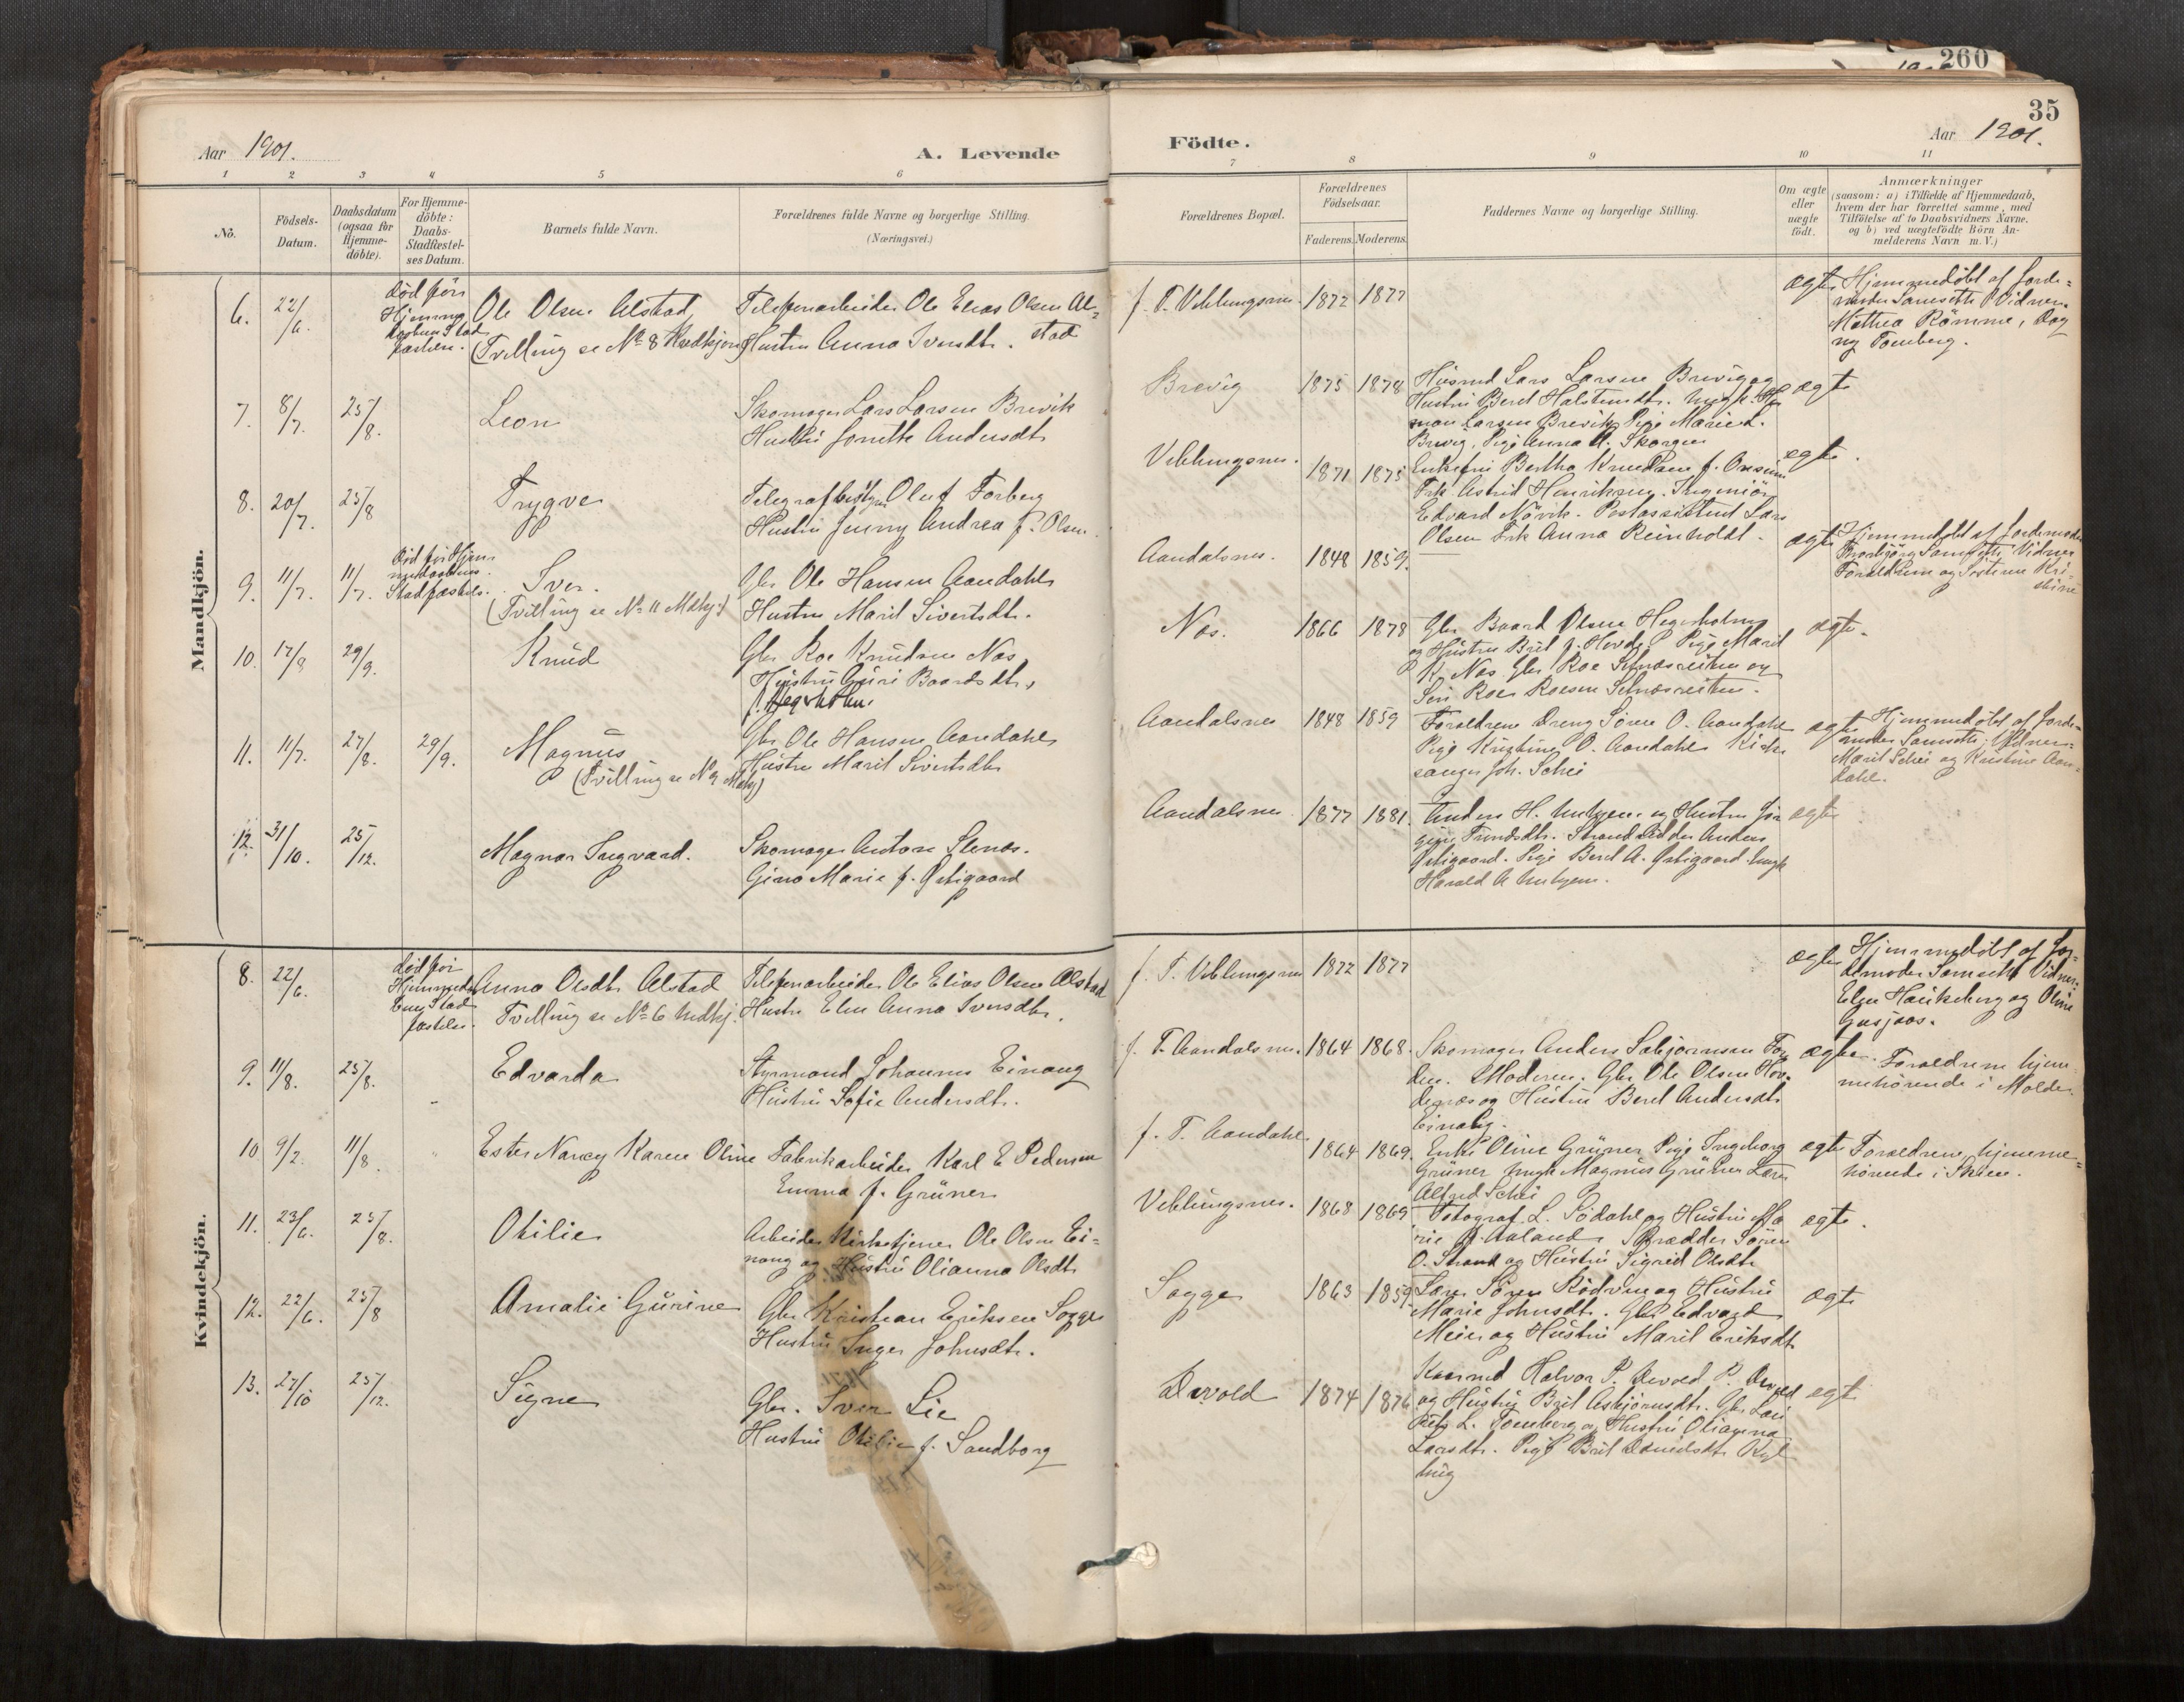 260
35
Aar 1901.
A. Levende
Födte.
Aar 1901.
1 2 3 4 5 6 7 8 9 10 11
Nô.
Födsels-
Datum.
Daabsdatum
(ogsaa for
Hjemme-
döbte).
For Hjemme-
döbte:
Daabs-
Stadfæstel-
ses Datum.
Barnets fulde Navn.
Forældrenes fulde Navne og borgerlige Stilling.
(Næringsvei.)
Forældrenes Bopæl.
Forældrenes
Födselsaar.
Faderens. Moderens.
Faddernes Navne og borgerlige Stilling.
Om ægte
eller
uægte
födt.
Anmærkninger
(saasom: a) i Tilfælde af Hjemmedaab,
hvem der har forrettet samme, med
Tilföielse af to Daabsvidners Navne.
og b) ved uægtefödte Börn An-
melderens Navn m. V.)
Mandkjön.
6. 22/6.
død før
Hjemme
daabens Stad
fæstelse.
Ole Olsen Alstad
(Tvilling se No 8 Kvdkjøn)
Telefonarbeider Ole Elias Olsen Al=
stad
Hustru Anna Iversdtr.
f. T. Veblungsnes 1872 1877
ægte
Hjemmedøbt af Jorde=
moder Samseth Vidner
Mathea Rømme, Dag
ny Tomberg.
7. 8/7. 25/8.
Leon
Skomager Lars Larsen Brevik
Hustru Jonette Andersdtr
Brevig 1875 1878
Husmd Lars Larsen Brevig og
Hustru Beret Halsteindtr. Ungk.
Larsen Brevik, Pige Marie L.
Brevig, Pige Anna A. Skorgen
ægte
8. 20/7. 25/8
Trygve
Telegrafbestyrer Oluf Forberg
Hustru Jenny Andrea f. Olsen.
Veblungsnes. 1871 1875
Enkefru Bertha Knudsen f. Onsum
Frk Astrid Henriksen. Ingeniør
Edvard Növik. Postassistent Lars
Olsen Frk Anna Reinholdt.
ægte.
9. 11/7. 11/7.
Død før Hjem
medaabens
Stadfæstels.
Iver.
(Tvilling se No 11 Mdkj.)
Gbr Ole Hansen Aandahl
Hustru Marit Sivertsdtr.
Aandalsnes. 1848 1859.
ægte
Hjemmedøbt af Jordemoder
Samseth Vidner
Forældrene og Søsteren Kri-
stine
10. 17/8 29/9.
Knud
Gbr Roe Knudsen Nas
Hustru Guri Baardsdtr,
f. Hegerholm.
Nas. 1866 1878
Gbr Baard Olsen Hegerholm
og Hustru Brit f. Hovde. Pige Marit
K. Nas Gbr Roe Setnæsreiten og
Søn Roer Roesen Setnæsreiten.
ægte.
11. 11/7. 27/8. 29/9.
Magnus
(Tvilling se No 9 Mdkj)
Gbr Ole Hansen Aandahl
Hustru Marit Sivertsdtr
Aandalsnes 1848 1859
Forældrene Dreng Sören O. Aandahl
Pige Kristine O. Aandahl Kirke
sanger Joh. Schei
ægte
Hjemmedøbt af Jorde-
moder Samseth; Vidner:
Marit Schei og Kristine Aan-
dahl.
12. 31/10. 25/12.
Magnar Ingvard.
Skomager Anton Stenæs.
Gina Marie f. Østigaard
Aandalsnes 1877 1881.
Anders H. Unhjem og Hustru Jør
gine Trondsdtr. Strandsidder Anders
Østigaard. Pige Beret A. Østigaard. Ungk
Harald A Unhjem.
ægte
Kvindekjön.
8. 22/6.
død før
Hjemmeda
bens Stad
fæstelse.
Anna Olsdtr Alstad
Tvilling se No 6 Mdkj.
Telefonarbeider Ole Elias Olsen Alstad
Hustru Elen Anna Iversdtr.
f. T. Veblungsnes 1872 1877
ægte
Hjemmedøbt af Jor-
demoder Samseth Vidner:
Elen Haukeberg og Oline
Gusjaas.
9. 11/8. 25/8.
Edvarda
Styrmand Johannes Einang
Hustru Sofie Andersdtr.
f. T. Aandalsnes. 1864 1868.
Skomager Anders Asbjørnsen Fa
den. Moderen. Gbr Ole Olsen Hov-
degræs og Hustru Beret Andersdtr
Einang.
ægte.
Forældrene hjem
mehørende i Molde.
10 9/2. 11/8.
Ester Nancy Karen Oline
Fabrikarbeider Karl E Pedersen
Emma f. Grüner
f. T. Aandahl. 1864 1869.
Enke Oline Grüner Pige Ingeborg
Grüner Ungk Magnus Grüner Lærer
Alfred Schei
ægte
Forældrene hjemme=
hørende i Skien.
11. 23/6. 25/8.
Otilie
Arbeider Kirketjener Ole Olsen Ei=
nang og Hustru Olianna Olsdtr
Veblungsnes. 1868 1869
Fotograf L. Södahl og Hustru Ma
rie f. Aaland. Skrædder Søren
O. Strand og Hustru Sigrid Olsdtr
ægte.
12. 22/6. 25/8
Amalie Gurine
Gbr Kristian Eriksen Sogge
Hustru Inger Johnsdtr.
Sogge 1863 1859
Lærer Sören Rödven og Hustru
Marie Johnsdtr. Gbr Edvard
Meier og Hustru Marit Eriksdtr
ægte
13. 27/10 25/12.
Signe
Gbr. Iver Lie
Hustru Otilie f. Sandborg
Devold 1874 1876
Kaarmd Halvor P. Devold P. Devold
og Hustru Brit Asbjørnsdtr. Gbr Lau
ritz L. Tomberg og Hustru Olianna
Larsdtr. Pige Brit
ægte